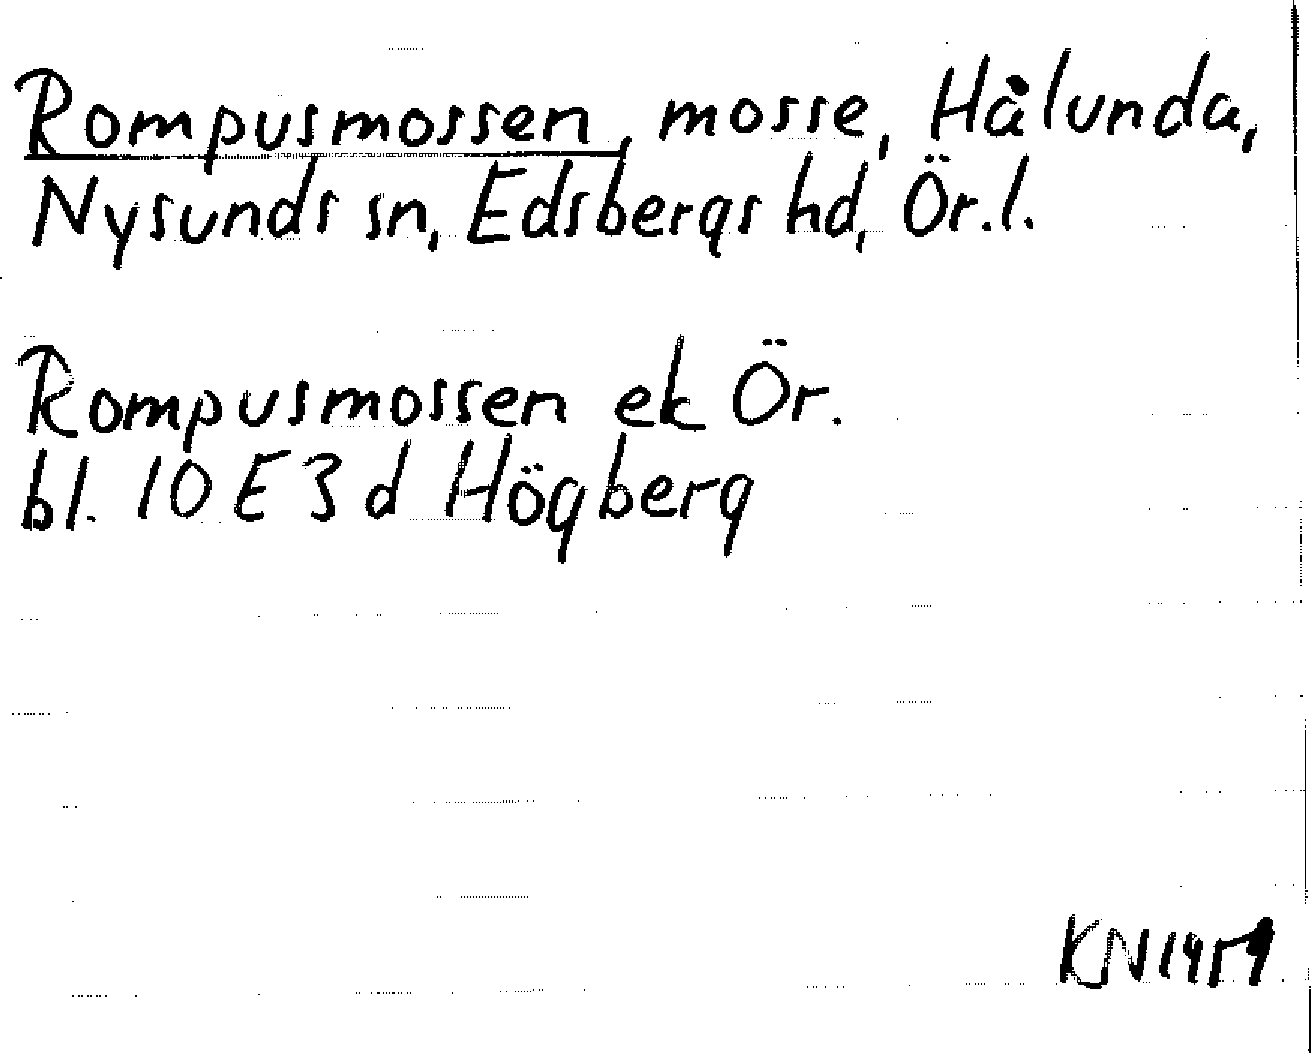 Rompusmossen, mosse, Hålunda,
Nysunds sn, Edsbergs hd, Ör.l.
Rompusmossen ek Ör.
bl. 10 E 3 d Högberg
KN 1959